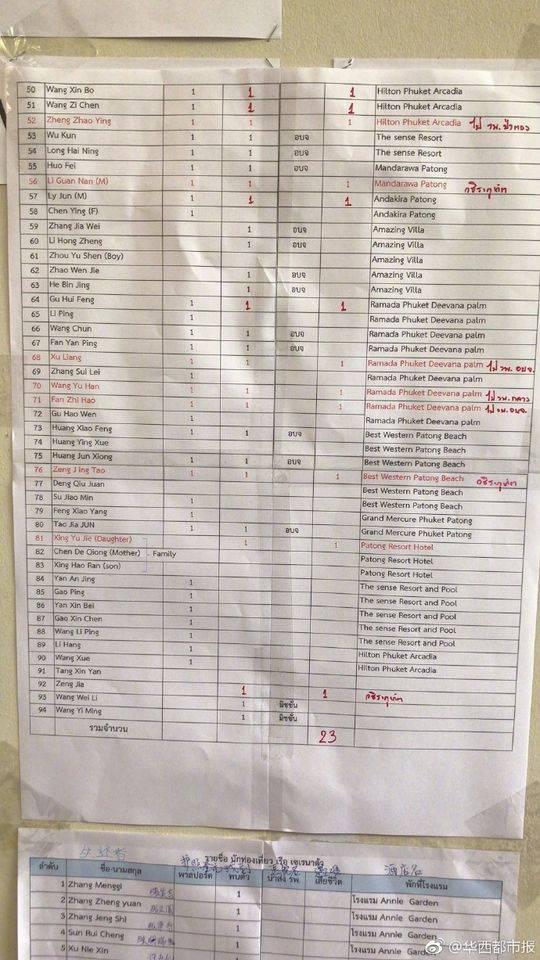 50 Wang Xin Bo 1 1 1 Hilton Phuket Arcadia
51 Wang Zi Chen 1 1 1 Hilton Phuket Arcadia
52 Zheng Zhao Ying 1 1 1 Hilton Phuket Arcadia ไป รพ. ป่าตอง
53 Wu Kun 1 1 อบจ The sense Resort
54 Long Hai Ning 1 1 อบจ The sense Resort
55 Huo Fei 1 1 อบจ Mandarawa Patong
56 Li Guan Nan (M) 1 1 1 Mandarawa Patong วชิระภูเก็ต
57 Ly Jun (M) 1 1 1 Andakira Patong
58 Chen Ying (F) 1 Andakira Patong
59 Zhang Jia Wei 1 อบจ Amazing Villa
60 Li Hong Zheng 1 อบจ Amazing Villa
61 Zhou Yu Shen (Boy) Amazing Villa
62 Zhao Wen Jie 1 อบจ Amazing Villa
63 He Bin Jing 1 อบจ Amazing Villa
64 Gu Hui Feng 1 1 1 Ramada Phuket Deevana palm
65 Li Ping 1 Ramada Phuket Deevana palm
66 Wang Chun 1 1 อบจ Ramada Phuket Deevana palm
67 Fan Yan Ping 1 1 อบจ Ramada Phuket Deevana palm
68 Xu Liang 1 1 1 Ramada Phuket Deevana palm ไป รพ. อบจ.
69 Zhang Sui Lei 1 Ramada Phuket Deevana palm
70 Wang Yu Han 1 1 1 Ramada Phuket Deevana palm ไป รพ.
71 Fan Zhi Hao 1 1 1 Ramada Phuket Deevana palm ไป รพ. อบจ.
72 Gu Hao Wen 1 Ramada Phuket Deevana palm
73 Huang Xiao Feng 1 1 อบจ Best Western Patong Beach
74 Huang Ying Xue Best Western Patong Beach
75 Huang Jun Xiong 1 1 อบจ Best Western Patong Beach
76 Zeng J ing Tao 1 1 1 Best Western Patong Beach วชิระภูเก็ต
77 Deng Qiu Juan 1 Best Western Patong Beach
78 Su Jiao Min 1 Best Western Patong Beach
79 Feng Xiao Yang 1 Grand Mercure Phuket Patong
80 Tao Jia JUN 1 1 อบจ Grand Mercure Phuket Patong
81 Xing Yu Jie (Daughter) 1 1 Patong Resort Hotel
82 Chen De Qiong (Mother) Family Patong Resort Hotel
83 Xing Hao Ran (son) Patong Resort Hotel
84 Yan An Jing 1 The sense Resort and Pool
85 Gao Ping 1 The sense Resort and Pool
86 Yan Xin Bei 1 The sense Resort and Pool
87 Gao Xin Chen 1 The sense Resort and Pool
88 Wang Li Ping 1 The sense Resort and Pool
89 Li Hang 1 Hilton Phuket Arcadia
90 Wang Xue 1 Hilton Phuket Arcadia
91 Tang Xin Yan
92 Zeng Jia 1 1 วชิระภูเก็ต
93 Wang Wei Li 1 มิชชั่น
94 Wang Yi Ming 1 มิชชั่น
รวมจำนวน 23
失联者 รายชื่อ นักท่องเที่ยว เรือ เซเรนาต้า
酒店名
ลำดับ ชื่อ-นามสกุล พาสปอร์ต พบตัว นำส่ง รพ. เสียชีวิต พักที่โรงแรม
1 Zhang Mengqi 1
2 Zhang Zheng yuan 1 โรงแรม Annie Garden
3 Zhang Jeng Shi 1 โรงแรม Annie Garden
4 Sun Rui Cheng 1 โรงแรม Annie Garden
5 Xu Nie Xin 1 โรงแรม Annie Garden
@华西都市报